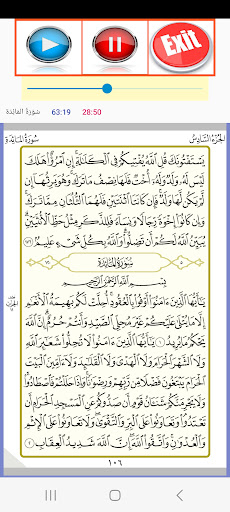 Exit
سورة المائدة 63:19 28:50
سُورَةُ المَائِدَة الجُزْءُ السَّادِسُ
يَسْتَفْتُونَكَ قُلِ ٱللَّهُ يُفْتِيكُمْ فِي ٱلْكَلَٰلَةِ إِنِ ٱمْرُؤٌا۟ هَلَكَ
لَيْسَ لَهُۥ وَلَدٌ وَلَهُۥٓ أُخْتٌ فَلَهَا نِصْفُ مَا تَرَكَ وَهُوَ يَرِثُهَآ إِن
لَّمْ يَكُن لَّهَا وَلَدٌ فَإِن كَانَتَا ٱثْنَتَيْنِ فَلَهُمَا ٱلثُّلُثَانِ مِمَّا تَرَكَ
وَإِن كَانُوٓا۟ إِخْوَةً رِّجَالًا وَنِسَآءً فَلِلذَّكَرِ مِثْلُ حَظِّ ٱلْأُنثَيَيْنِ
يُبَيِّنُ ٱللَّهُ لَكُمْ أَن تَضِلُّوا۟ وَٱللَّهُ بِكُلِّ شَىْءٍ عَلِيمٌ ١٧٦
سُورَةُ المَائِدَةِ
بِسْمِ ٱللَّهِ ٱلرَّحْمَٰنِ ٱلرَّحِيمِ
يَٰٓأَيُّهَا ٱلَّذِينَ ءَامَنُوٓا۟ أَوْفُوا۟ بِٱلْعُقُودِ أُحِلَّتْ لَكُم بَهِيمَةُ ٱلْأَنْعَٰمِ
إِلَّا مَا يُتْلَىٰ عَلَيْكُمْ غَيْرَ مُحِلِّى ٱلصَّيْدِ وَأَنتُمْ حُرُمٌ إِنَّ ٱللَّهَ
يَحْكُمُ مَا يُرِيدُ ١ يَٰٓأَيُّهَا ٱلَّذِينَ ءَامَنُوا۟ لَا تُحِلُّوا۟ شَعَٰٓئِرَ ٱللَّهِ
وَلَا ٱلشَّهْرَ ٱلْحَرَامَ وَلَا ٱلْهَدْىَ وَلَا ٱلْقَلَٰٓئِدَ وَلَآ ءَآمِّينَ ٱلْبَيْتَ
ٱلْحَرَامَ يَبْتَغُونَ فَضْلًا مِّن رَّبِّهِمْ وَرِضْوَٰنًا وَإِذَا حَلَلْتُمْ فَٱصْطَادُوا۟
وَلَا يَجْرِمَنَّكُمْ شَنَـَٔانُ قَوْمٍ أَن صَدُّوكُمْ عَنِ ٱلْمَسْجِدِ ٱلْحَرَامِ أَن
تَعْتَدُوا۟ وَتَعَاوَنُوا۟ عَلَى ٱلْبِرِّ وَٱلتَّقْوَىٰ وَلَا تَعَاوَنُوا۟ عَلَى ٱلْإِثْمِ
وَٱلْعُدْوَٰنِ وَٱتَّقُوا۟ ٱللَّهَ إِنَّ ٱللَّهَ شَدِيدُ ٱلْعِقَابِ ٢
١٠٦